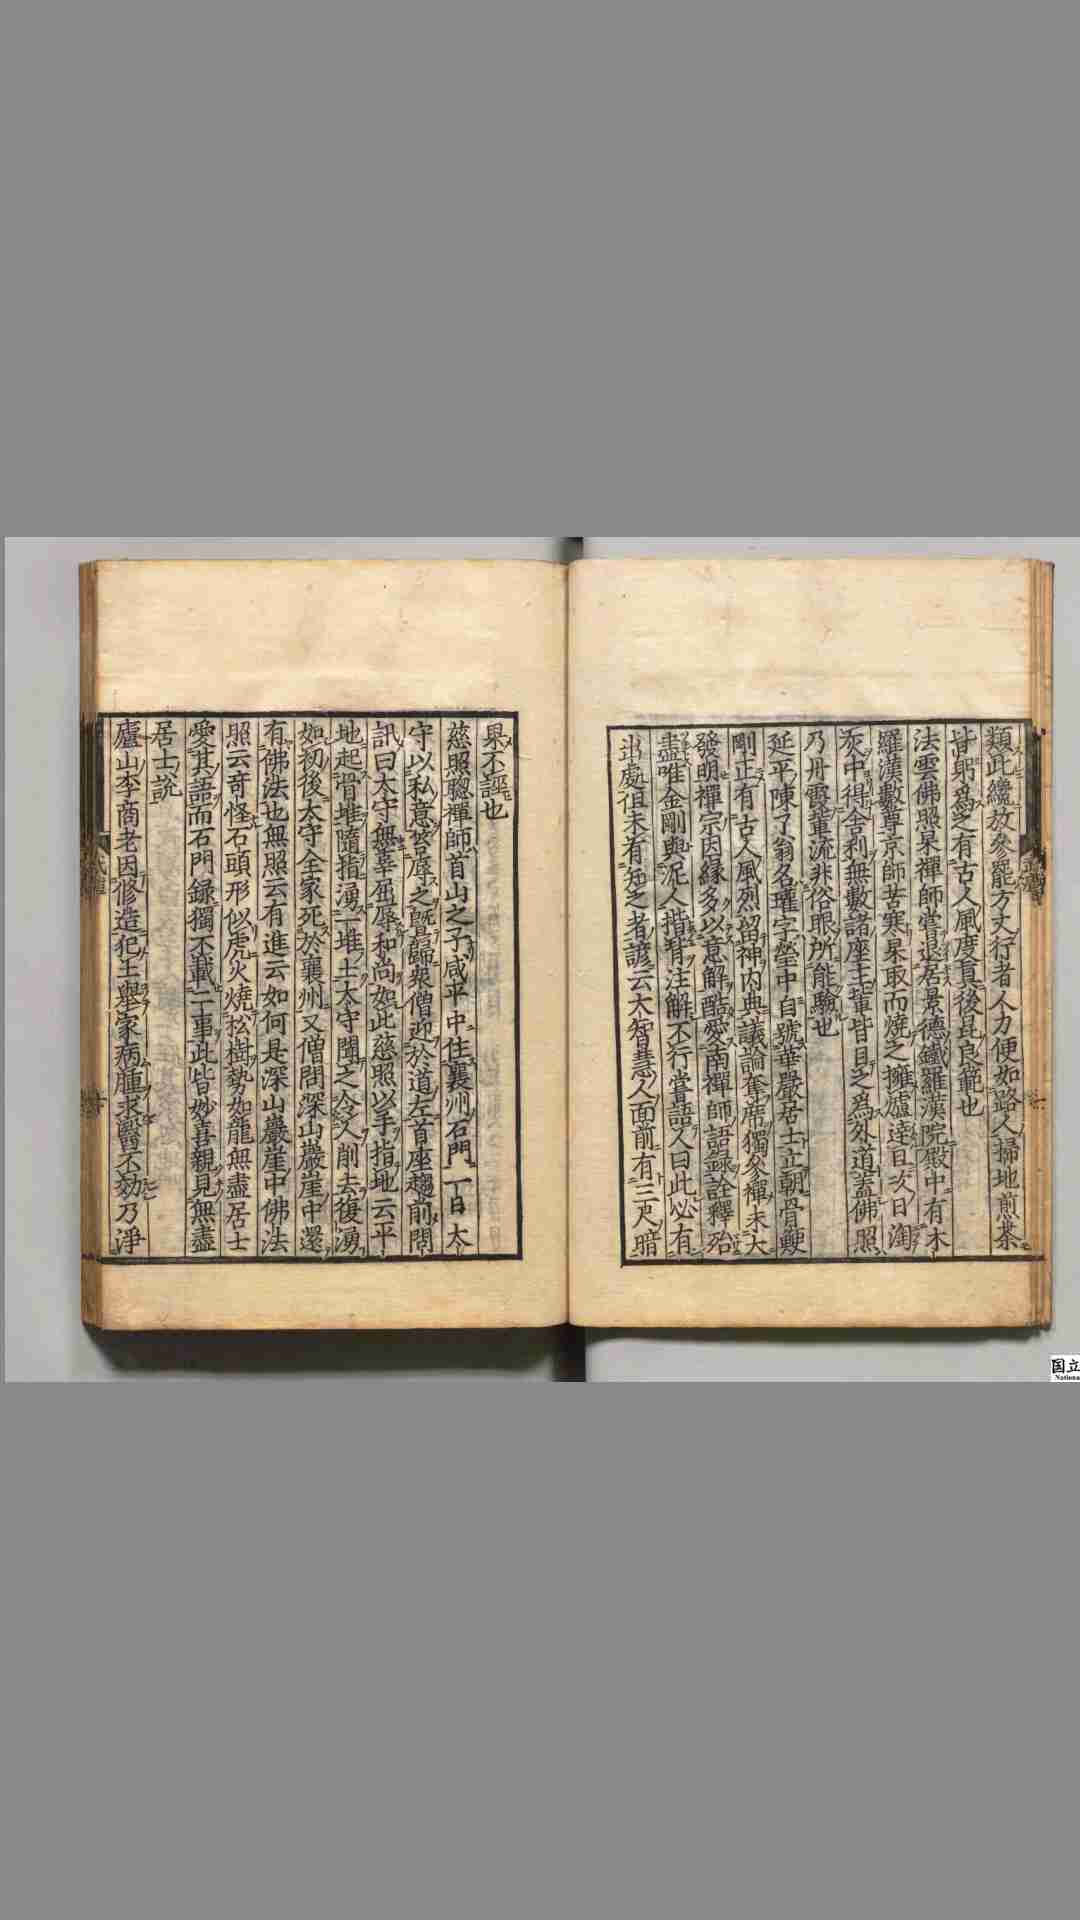 類此纔放參罷方丈行者人力便如路人掃地煎茶
皆躬爲之有古人風度眞後昆良範也
法雲佛照杲禪師嘗退居景德鐵羅漢院殿中有木
羅漢數尊京師苦寒杲取而燒之擁爐達旦次日淘
灰中得舍利無數諸座主輩皆目之爲外道蓋佛照
乃丹霞輩流非俗眼所能驗也
延平陳了翁名瓘字瑩中自號華嚴居士立朝骨鯁
剛正有古人風烈留神內典議論奪席獨參禪未大
發明禪宗因緣多以意解酷愛南禪師語録詮釋殆
盡唯金剛與泥人揩背注解不行嘗語人曰此必有
出處但未有知之者諺云大智慧人面前有三尺暗
果不誣也
慈照聰禪師首山之子咸平中住襄州石門一日太
守以私意笞辱之旣歸衆僧迎於道左首座趨前問
訊曰太守無辜屈辱和尚如此慈照以手指地云平
地起骨堆隨指湧一堆土太守聞之令人削去復湧
如初後太守全家死於襄州又僧問深山巖崖中還
有佛法也無照云有進云如何是深山巖崖中佛法
照云奇怪石頭形似虎火燒松樹勢如龍無盡居士
愛其語而石門録獨不載二事此皆妙喜親見無盡
居士說
廬山李商老因修造犯土舉家病腫求醫不効乃淨
国立
Nationa